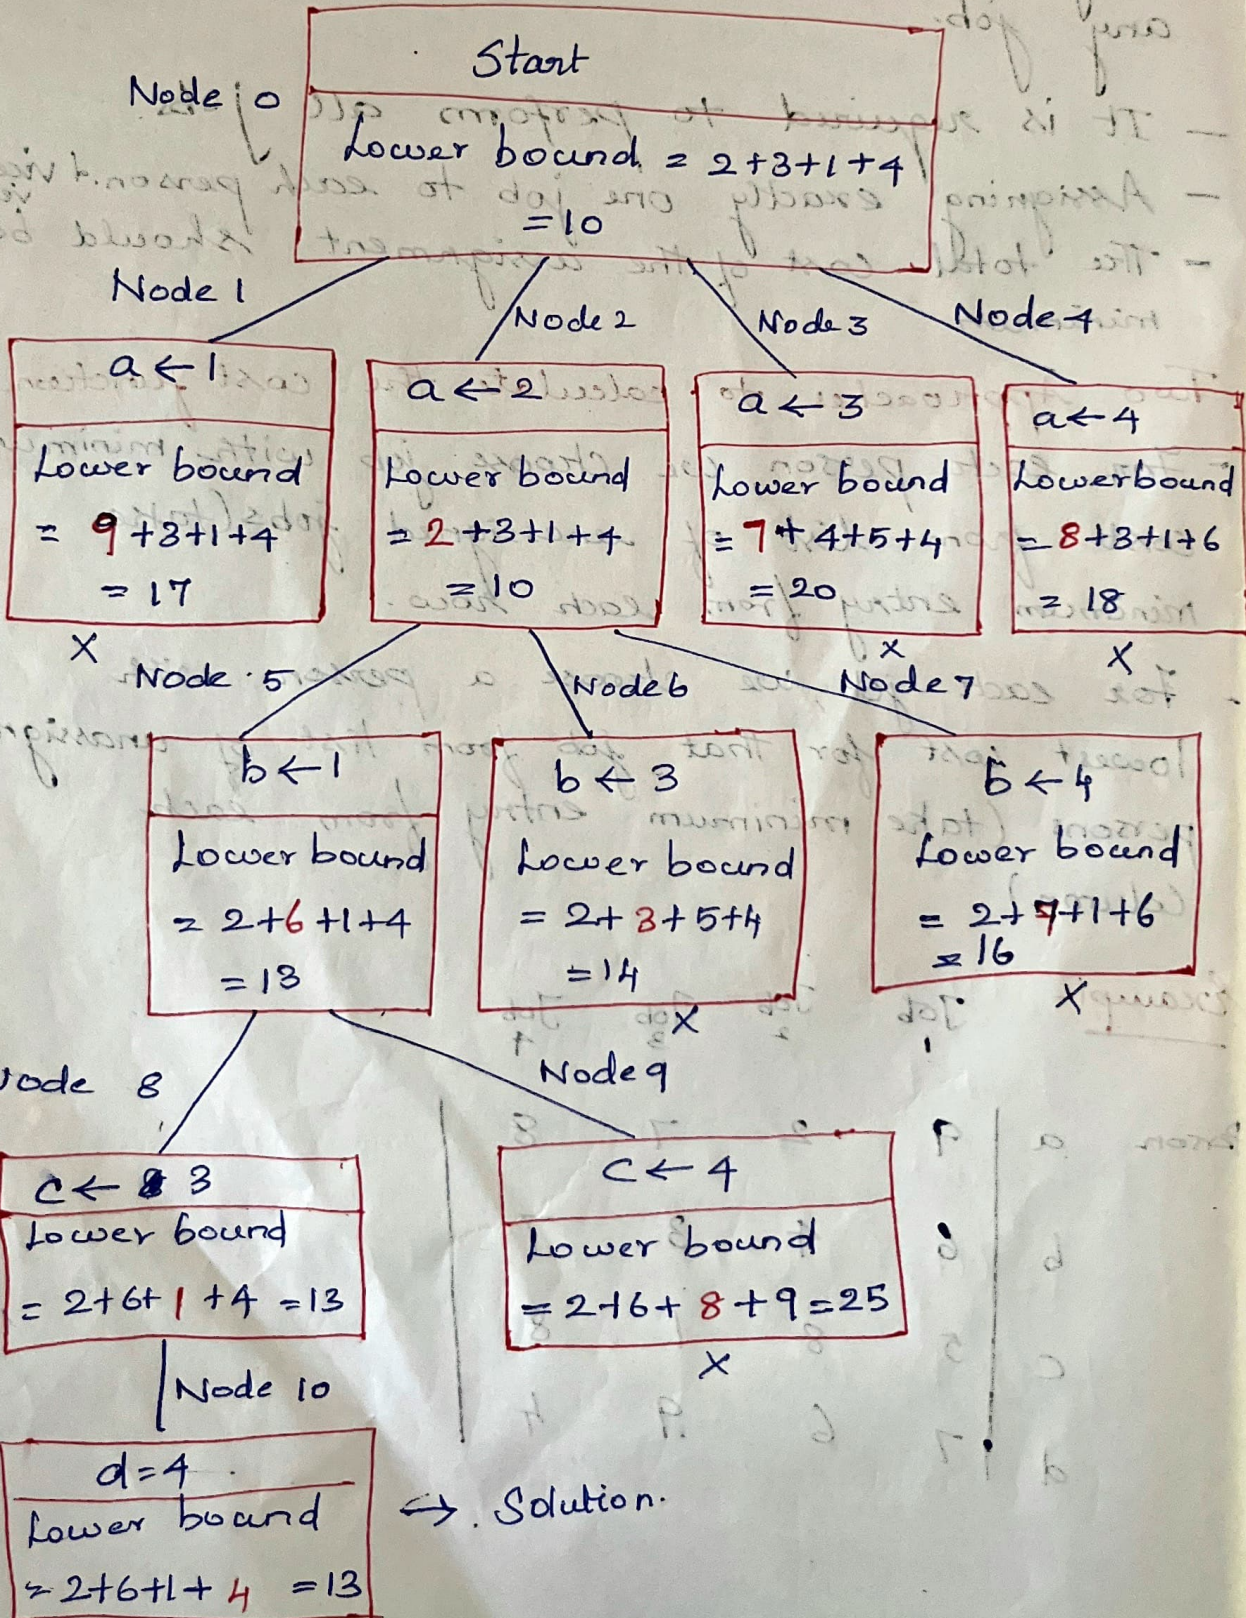 Start
Node 0
Lower bound = 2+3+1+4
=10
Node 1
Node 2
Node 3
Node 4
a ← 1
Lower bound
= 9+3+1+4
= 17
X
a ← 2
Lower bound
= 2+3+1+4
= 10
a ← 3
Lower bound
= 7+4+5+4
= 20
X
a ← 4
Lower bound
= 8+3+1+6
= 18
X
Node 5
Node 6
Node 7
b ← 1
Lower bound
= 2+6+1+4
= 13
b ← 3
Lower bound
= 2+3+5+4
= 14
X
b ← 4
Lower bound
= 2+7+1+6
= 16
X
Node 8
Node 9
c ← 3
Lower bound
= 2+6+1+4 = 13
c ← 4
Lower bound
= 2+6+8+9=25
X
Node 10
d=4
Lower bound
= 2+6+1+4 = 13
↔ Solution.